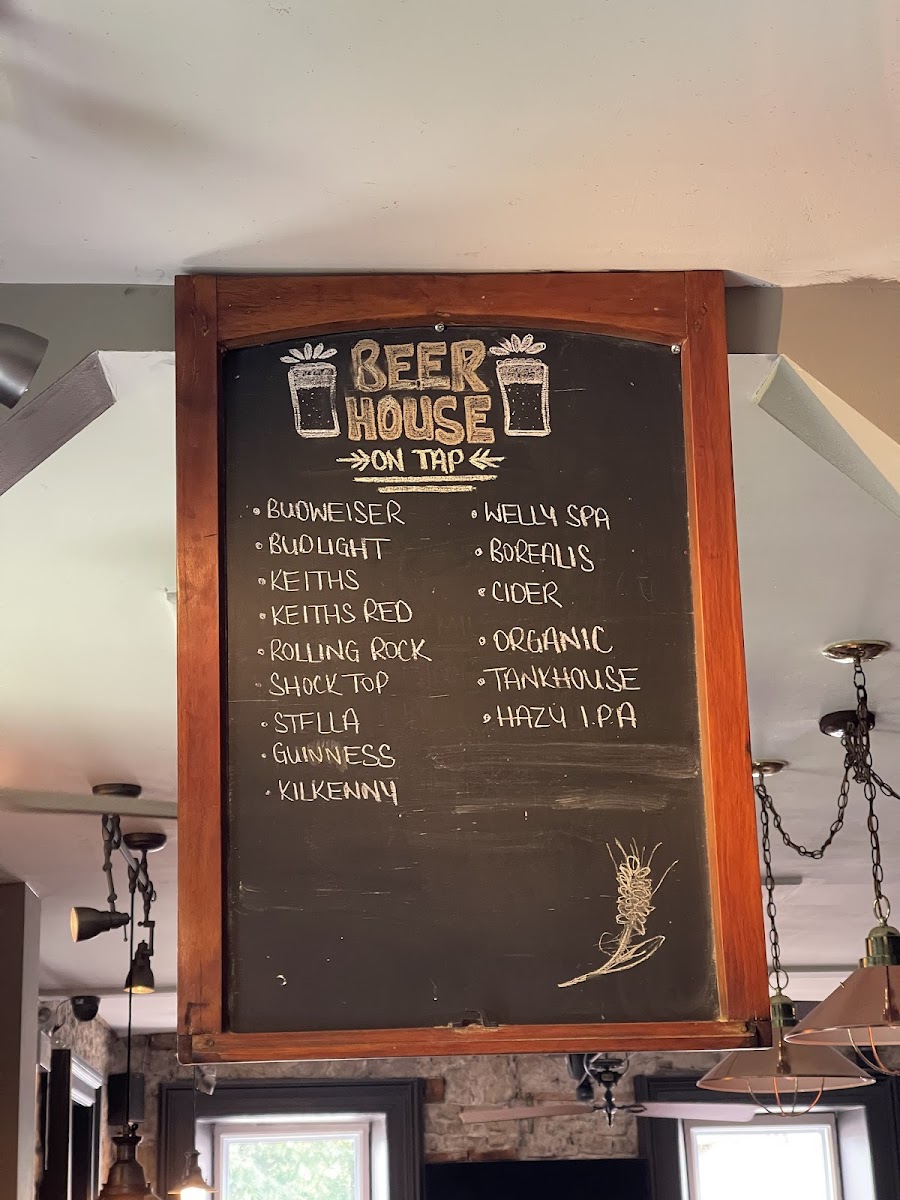 BEER
HOUSE
ON TAP
• BUDWEISER
• BUDLIGHT
• KEITHS
• KEITHS RED
• ROLLING ROCK
• SHOCK TOP
• STELLA
• GUINNESS
• KILKENNY
• WELLY SPA
• BOREALIS
• CIDER
• ORGANIC
• TANKHOUSE
• HAZY I.P.A